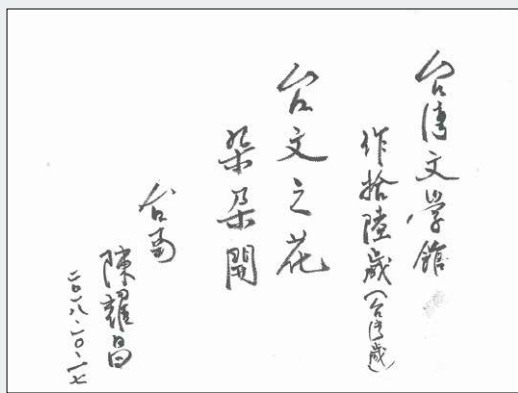 台湾文学館
作拾陸歳（台湾歳）
台文之花
朶朶開
台南
陳耀昌
二〇一八.一〇.一七